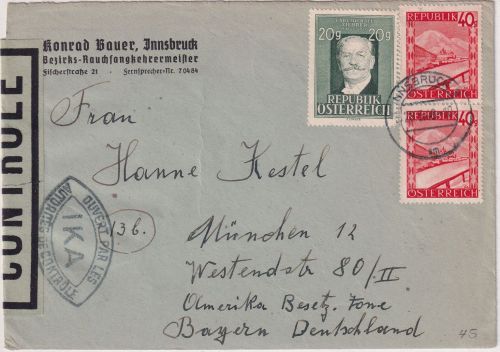 Konrad Bauer, Innsbruck
Bezirks-Rauchfangkehrermeister
Fischerstraße 21 - Fernsprecher-Nr. 70484
20g 20g
REPUBLIK
ÖSTERREICH
REPUBLIK 40g
ÖSTERREICH
REPUBLIK 40g
ÖSTERREICH
INNSBRUCK
CONTROLE
OUVERT PAR LES
IKA
AUTORITÉS DE CONTROLE
Frau
Hanne Kestel
13b.
München 12
Westendstr 80/II
Amerika Besetz. Zone
Bayern Deutschland
45